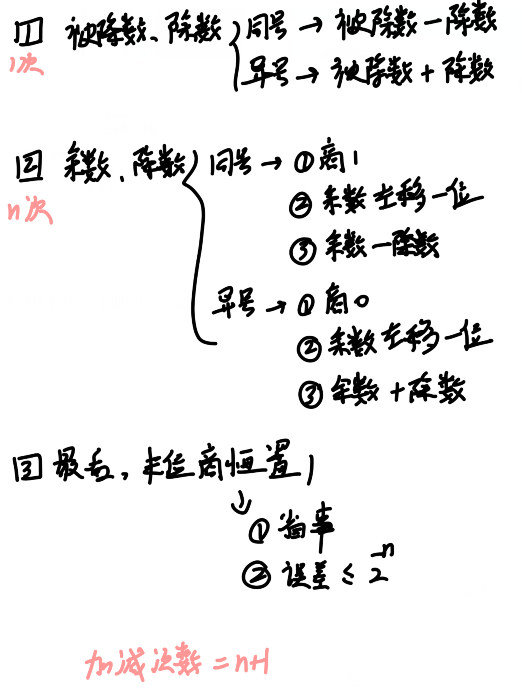 1 被除数、除数 同号 → 被除数－除数
1次 异号 → 被除数 + 除数
2 余数、除数 同号 → ① 商1
n次 ② 余数左移一位
③ 余数－除数
异号 → ① 商0
② 余数左移一位
③ 余数 + 除数
3 最后，末位商恒置1
↓
① 省事
② 误差 ≤ 2⁻ⁿ
加减次数 = n+1